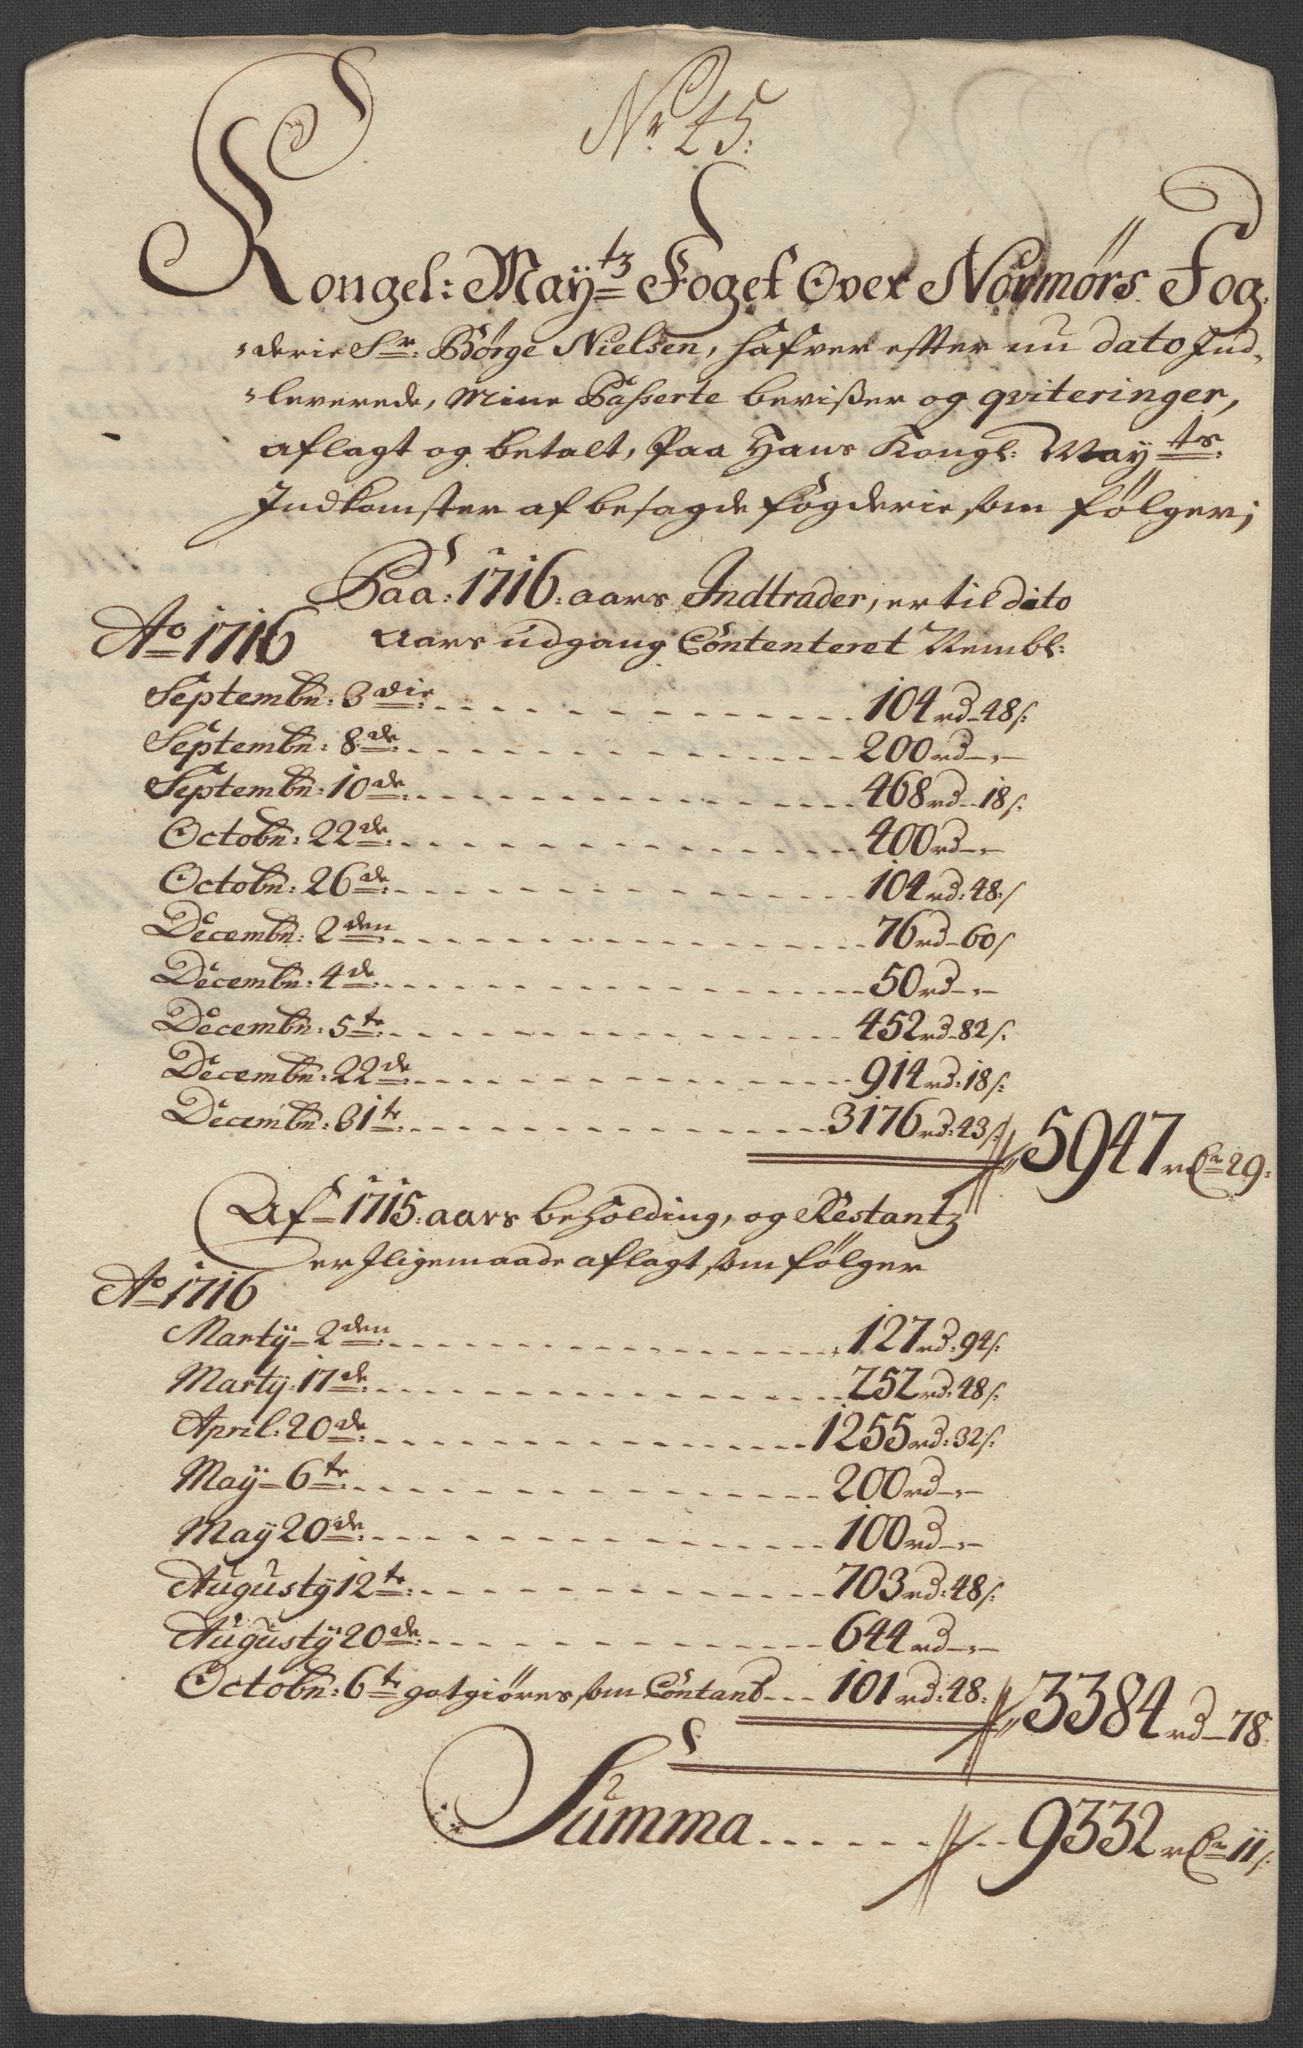 No 45:
Kongel: Mayts Foget Over Nörmörs Fog,
derie Sr: Börge Nielsen, hafver efter nu dato Ind,
leverede, Mine Passerte bevißer og qviteringer,
aflagt og betalt, Paa Hans Kongl: Mayts
Indkomster af besagde fögderie som fölger;
Paa: 1716: aars Indtrader, er til dito
Ao 1716 Aars udgang Contenteret Nembl:
Septembr: 3die 104 rd 48 s:
Septembr: 8de 200 rd -,-
Septembr: 10de 468 rd 18 s:
Octobr: 22de 400 rd -,-
Octobr: 26de 104 rd: 48: s
Decembr: 2den 76 rd 60 s
Decembr: 4de 50 rd -,-
Decembr: 5te 452 rd 82 s:
Decembr: 22de 914 rd: 18 s:
Decembr: 31te 3176 rd: 43 s: 5947 rdr 29:
Af 1715: aars beholding, og Restantz
er Iligemaade aflagt som fölger
Ao 1716
Martÿ 2den 127 rd: 94 s:
Martÿ: 17de 252 rd: 48 s:
April: 20de 1255 rd: 32 s:
Maÿ 6te 200 rd -,-
Maÿ 20de 100 rd -,-
Augustÿ 12te 703 rd: 48 s:
Augustÿ 20de 644 rd -,-
Octobr: 6te gotgiöres som Contant 101 rd: 48: 3384 rd 78:
Summa 9332 rdr 11 s: